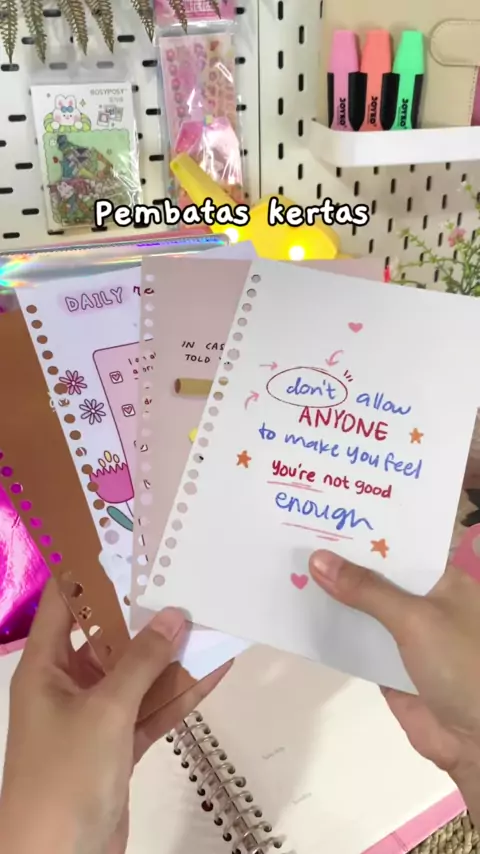 Pembatas kertas
JOYKO
JOYKO
JOYKO
DAILY
IN CAS
TOLD
don't allow
ANYONE
to make you feel
you're not good
enough